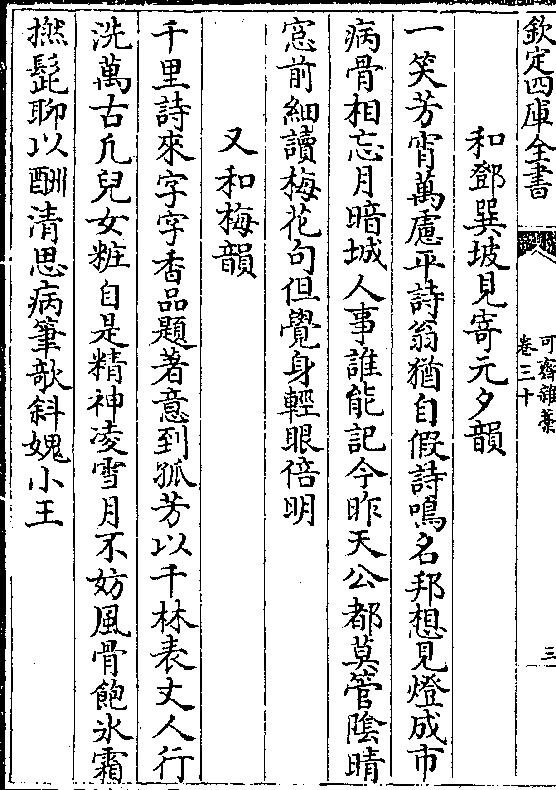 欽定四庫全書
可齋雜藁
卷三十
三
和鄧巽坡見寄元夕韻
一笑芳宵萬慮平詩翁猶自假詩鳴名邦想見燈成市
病骨相忘月暗城人事誰能記今昨天公都莫管陰晴
窓前細讀梅花句但覺身輕眼倍明
又和梅韻
千里詩來字字香品題著意到孤芳以千林表丈人行
洗萬古凡兒女粧自是精神凌雪月不妨風骨飽氷霜
撚髭聊以酬清思病筆欹斜媿小王